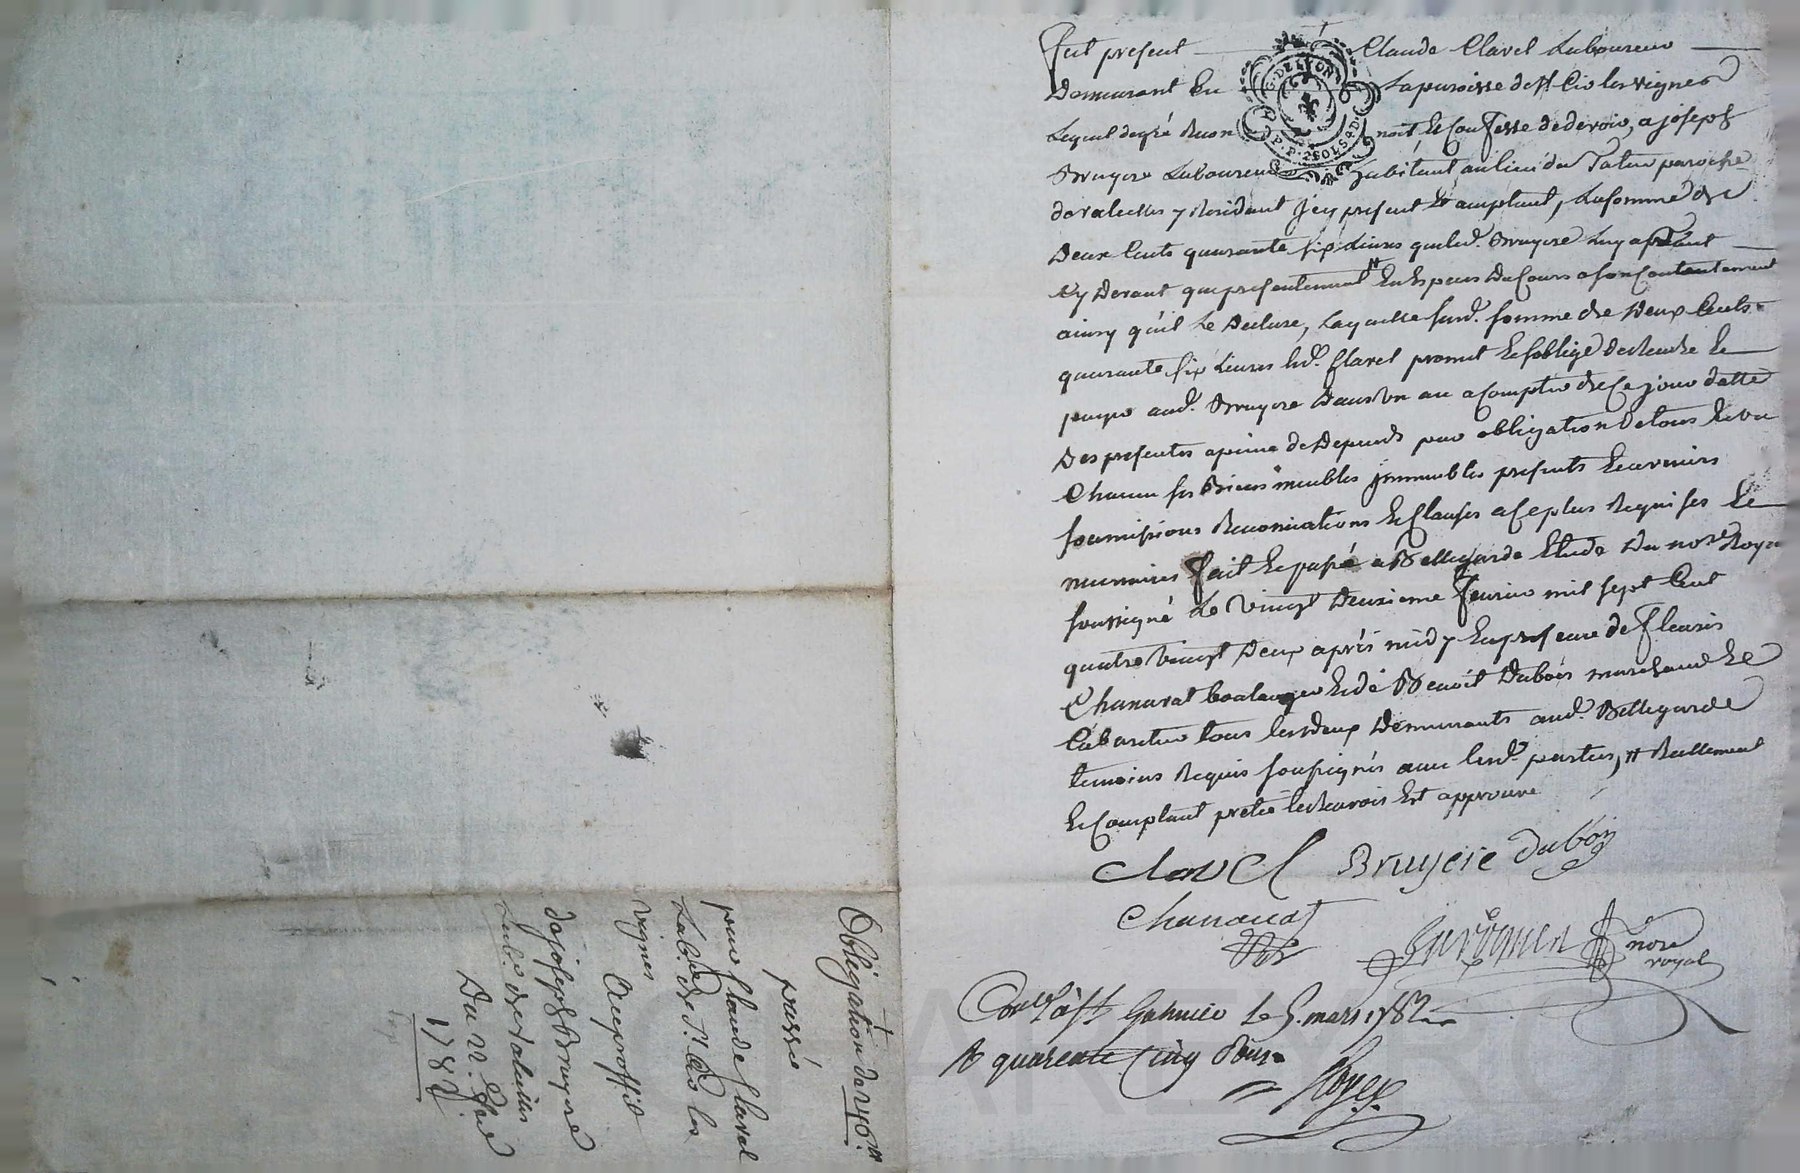 Fut present Claude Clavel Laboureur
Demeurant En La paroisse de St Cir les vignes
Lequel de gré Recon noit Et Confesse de devoir, a joseph
Bruyere Laboureur habitant au lieu du paroisse
de valeilles y Residant Icy present Et acceptant, La somme de
Deux Cents quarante six Livres que led. Bruyere Luy a presté
cy Devant que presentement # En Especes Du Cours a son Contentement
ainsy qu'il Le Declare, Laquelle susd. somme de Deux Cents
quarante six Livres led. Clavel promet Et s'oblige de rendre Et
payer aud. Bruyere Dans un an a Compter de Ce jour datte
Des presentes a peine de Depends par obligation de tous Et un
Chacun ses Biens meubles jmmeubles presents Et avenirs
soumissions Renonciations Et Clauses a Ce plus Requises Et
necessaires fait Et passé a Bellegarde Etude Du nore Royal
soussigné Le Vingt Deuxieme fevrier mil sept Cent
quatre Vingt Deux après midy En presence de fleuris
Chanavat boulanger Et de Benoit Dubois marchand Et
Cabaretier tous les deux Demeurants aud. Bellegarde
temoins Requis soussignés avec lesd. parties, # Reellement
Et Comptant preté Le Renvois Est approuvé
Clavel Bruyere duboy
Chanavat
nore
royal
Conlé à St Galmier Le 5. mars 1782
R quarente Cinq sous
Obligation de 246 ll
passée
par Claude Clavel
Lab.r de St. Cir les
vignes
Au proffit
de joseph Bruyere
Lab.r de valeilles
Du 22. fevr
1782